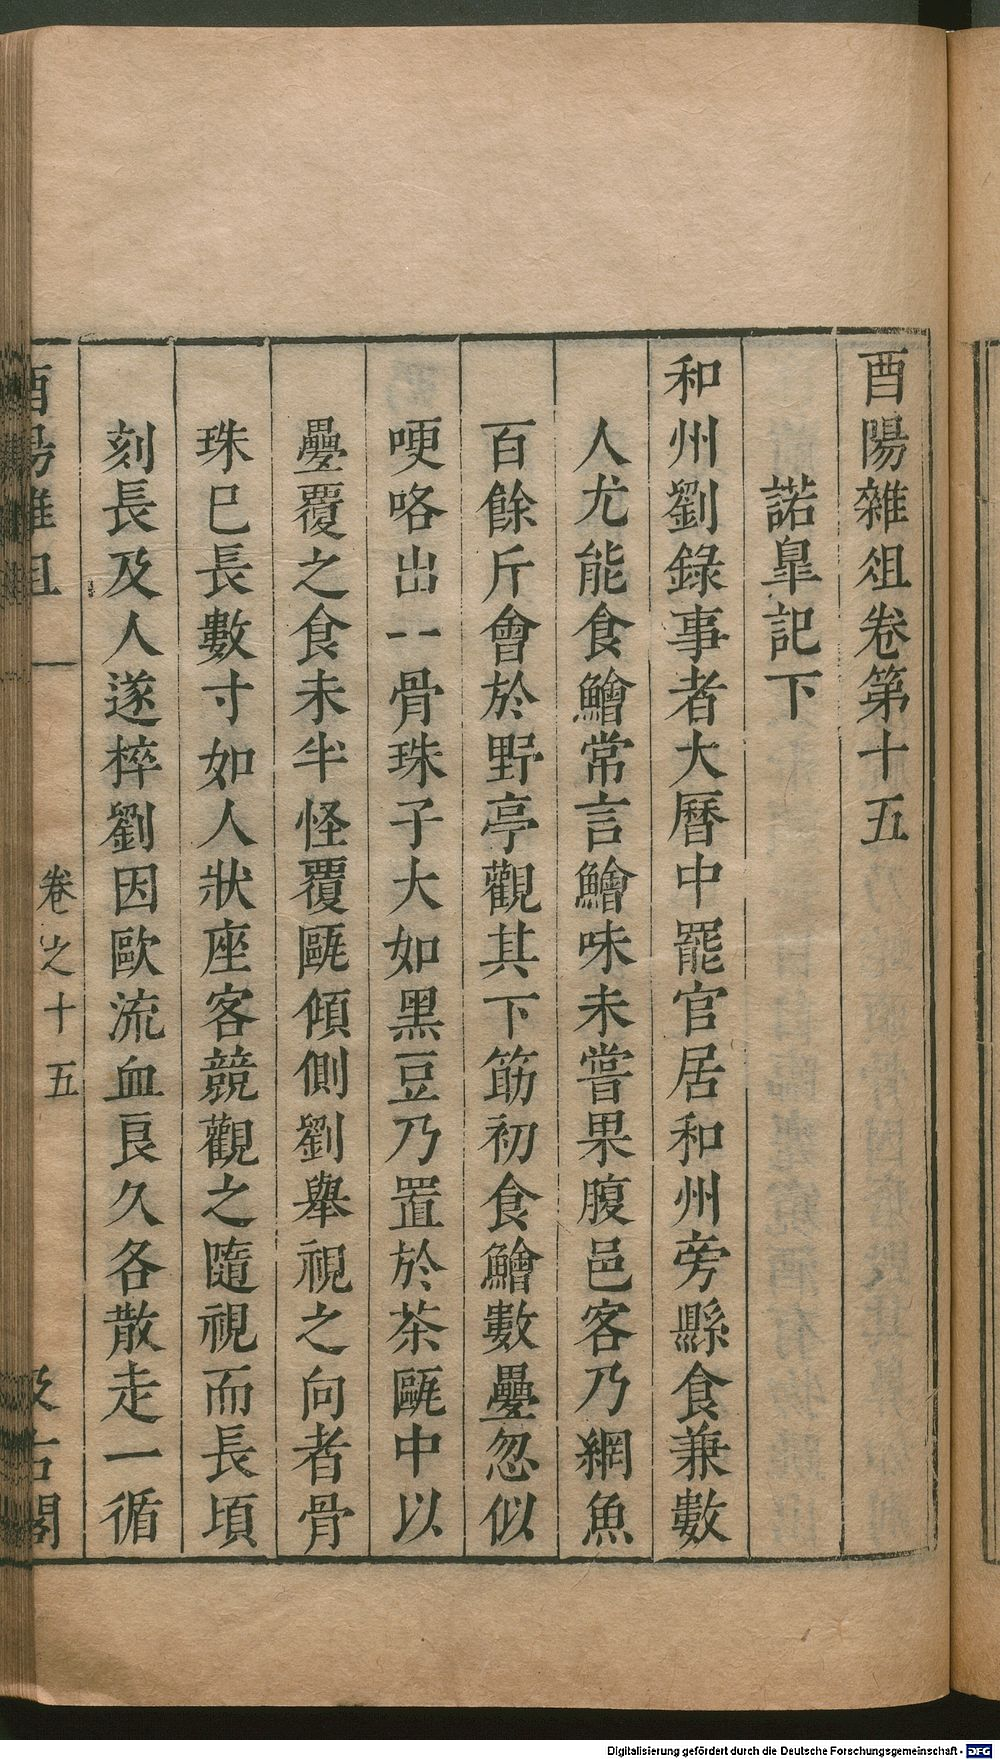 酉陽雜俎卷第十五
諾臯記下
和州劉錄事者大曆中罷官居和州旁縣食兼數
人尤能食鱠常言鱠味未嘗果腹邑客乃網魚
百餘斤會於野亭觀其下筯初食鱠數疊忽似
哽咯出一骨珠子大如黑豆乃置於茶甌中以
疊覆之食未半怪覆甌傾側劉舉視之向者骨
珠巳長數寸如人狀座客競觀之隨視而長頃
刻長及人遂椊劉因歐流血良久各散走一循
酉陽雜俎 一 卷之十五 汲古閣
Digitalisierung gefördert durch die Deutsche Forschungsgemeinschaft - DFG